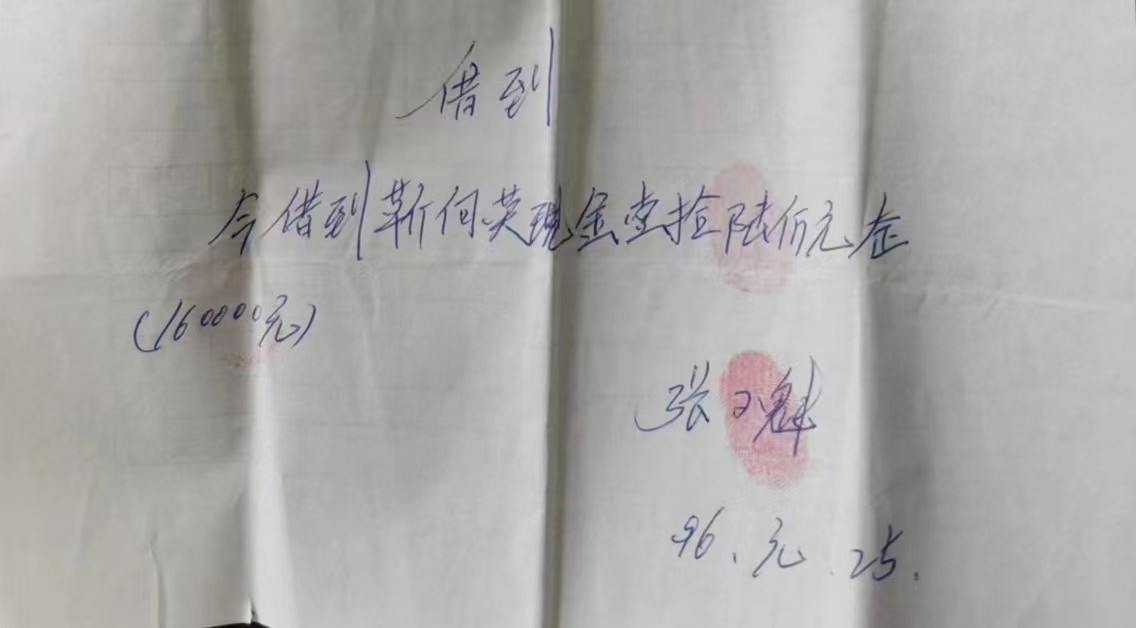 借到
今借到靳何英现金壹拾陆仟元正
(16000元)
张 魁
96.元.25.